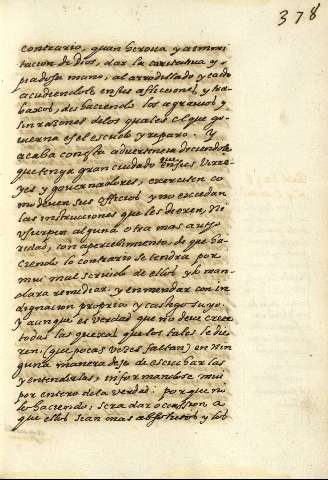 378
contrario, quan heroua y a immi
tacion de Dios, dar la caritatiua y
piadosa mano, al arrodillado y caido
acudiendole en sus aflicciones, y tra
baxos, deshaciendo los agrauios y
sinrazones de los quales el que go
uierna es el escudo y reparo. Y
acaba con esta aduertencia diciendole
que tenga gran cuidado que en sus Virre
yes y gouernadores, exerciten co
mo deuen sus officios y no excedan
las instrucciones que les dieren, Ni
usurpen alguna otra mas auto
ridad, con apercebimiento de que ha
ciendo lo contrario se tendra por
mui mal seruido de ellos y lo man
dara remediar y enmendar con in
dignacion propria y castigo suyo.
y aunque es verdad que no deue creer
todas las quexas que los tales se die
ren (que pocas veces faltan) en nin
guna manera dexe de escucharlas
y entenderlas, informandose mui
por entero de la verdad: porque no
lo haciendo, sera dar occassion a
que ellos sean mas absolutos y los